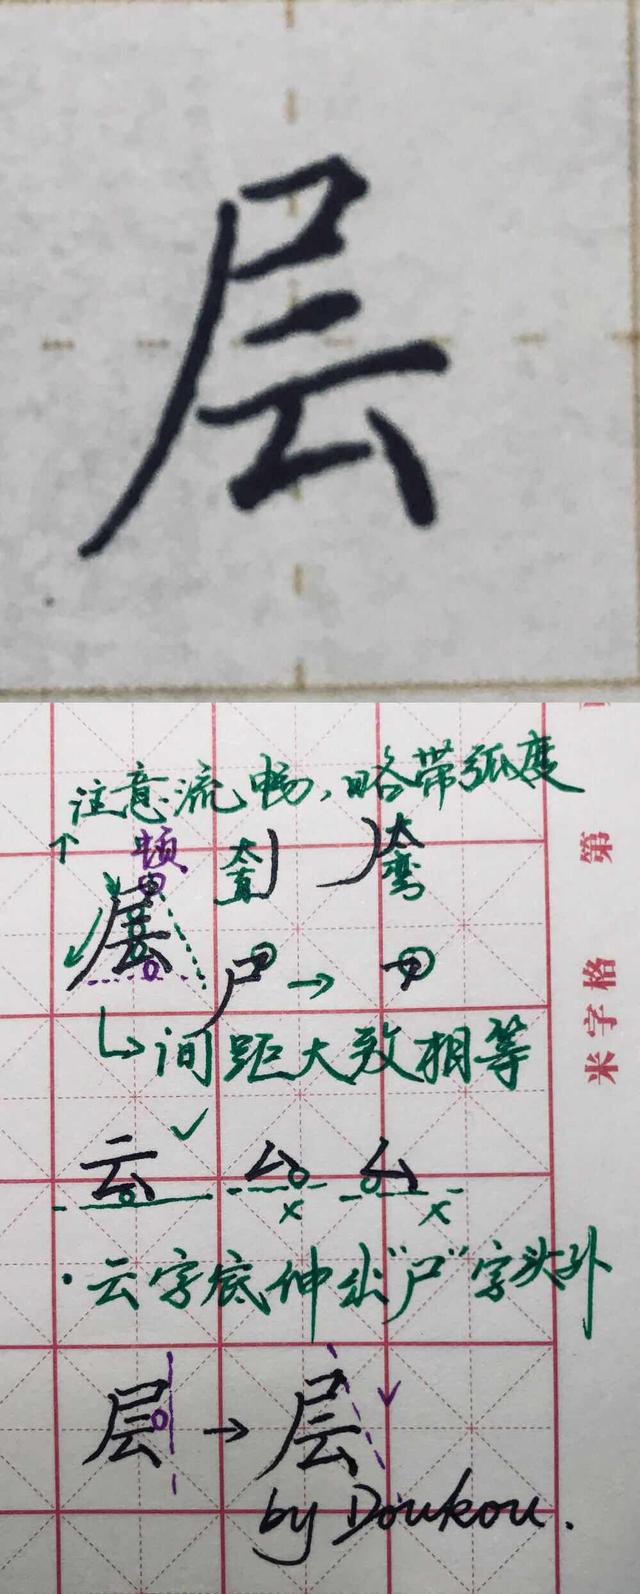 层
注意流畅，略带弧度
顿 太直 太弯
层 尸 →
间距大致相等
云 ✓
x x
·云字底伸出“尸”字头外
层 → 层
by Doukou.
第
米字格